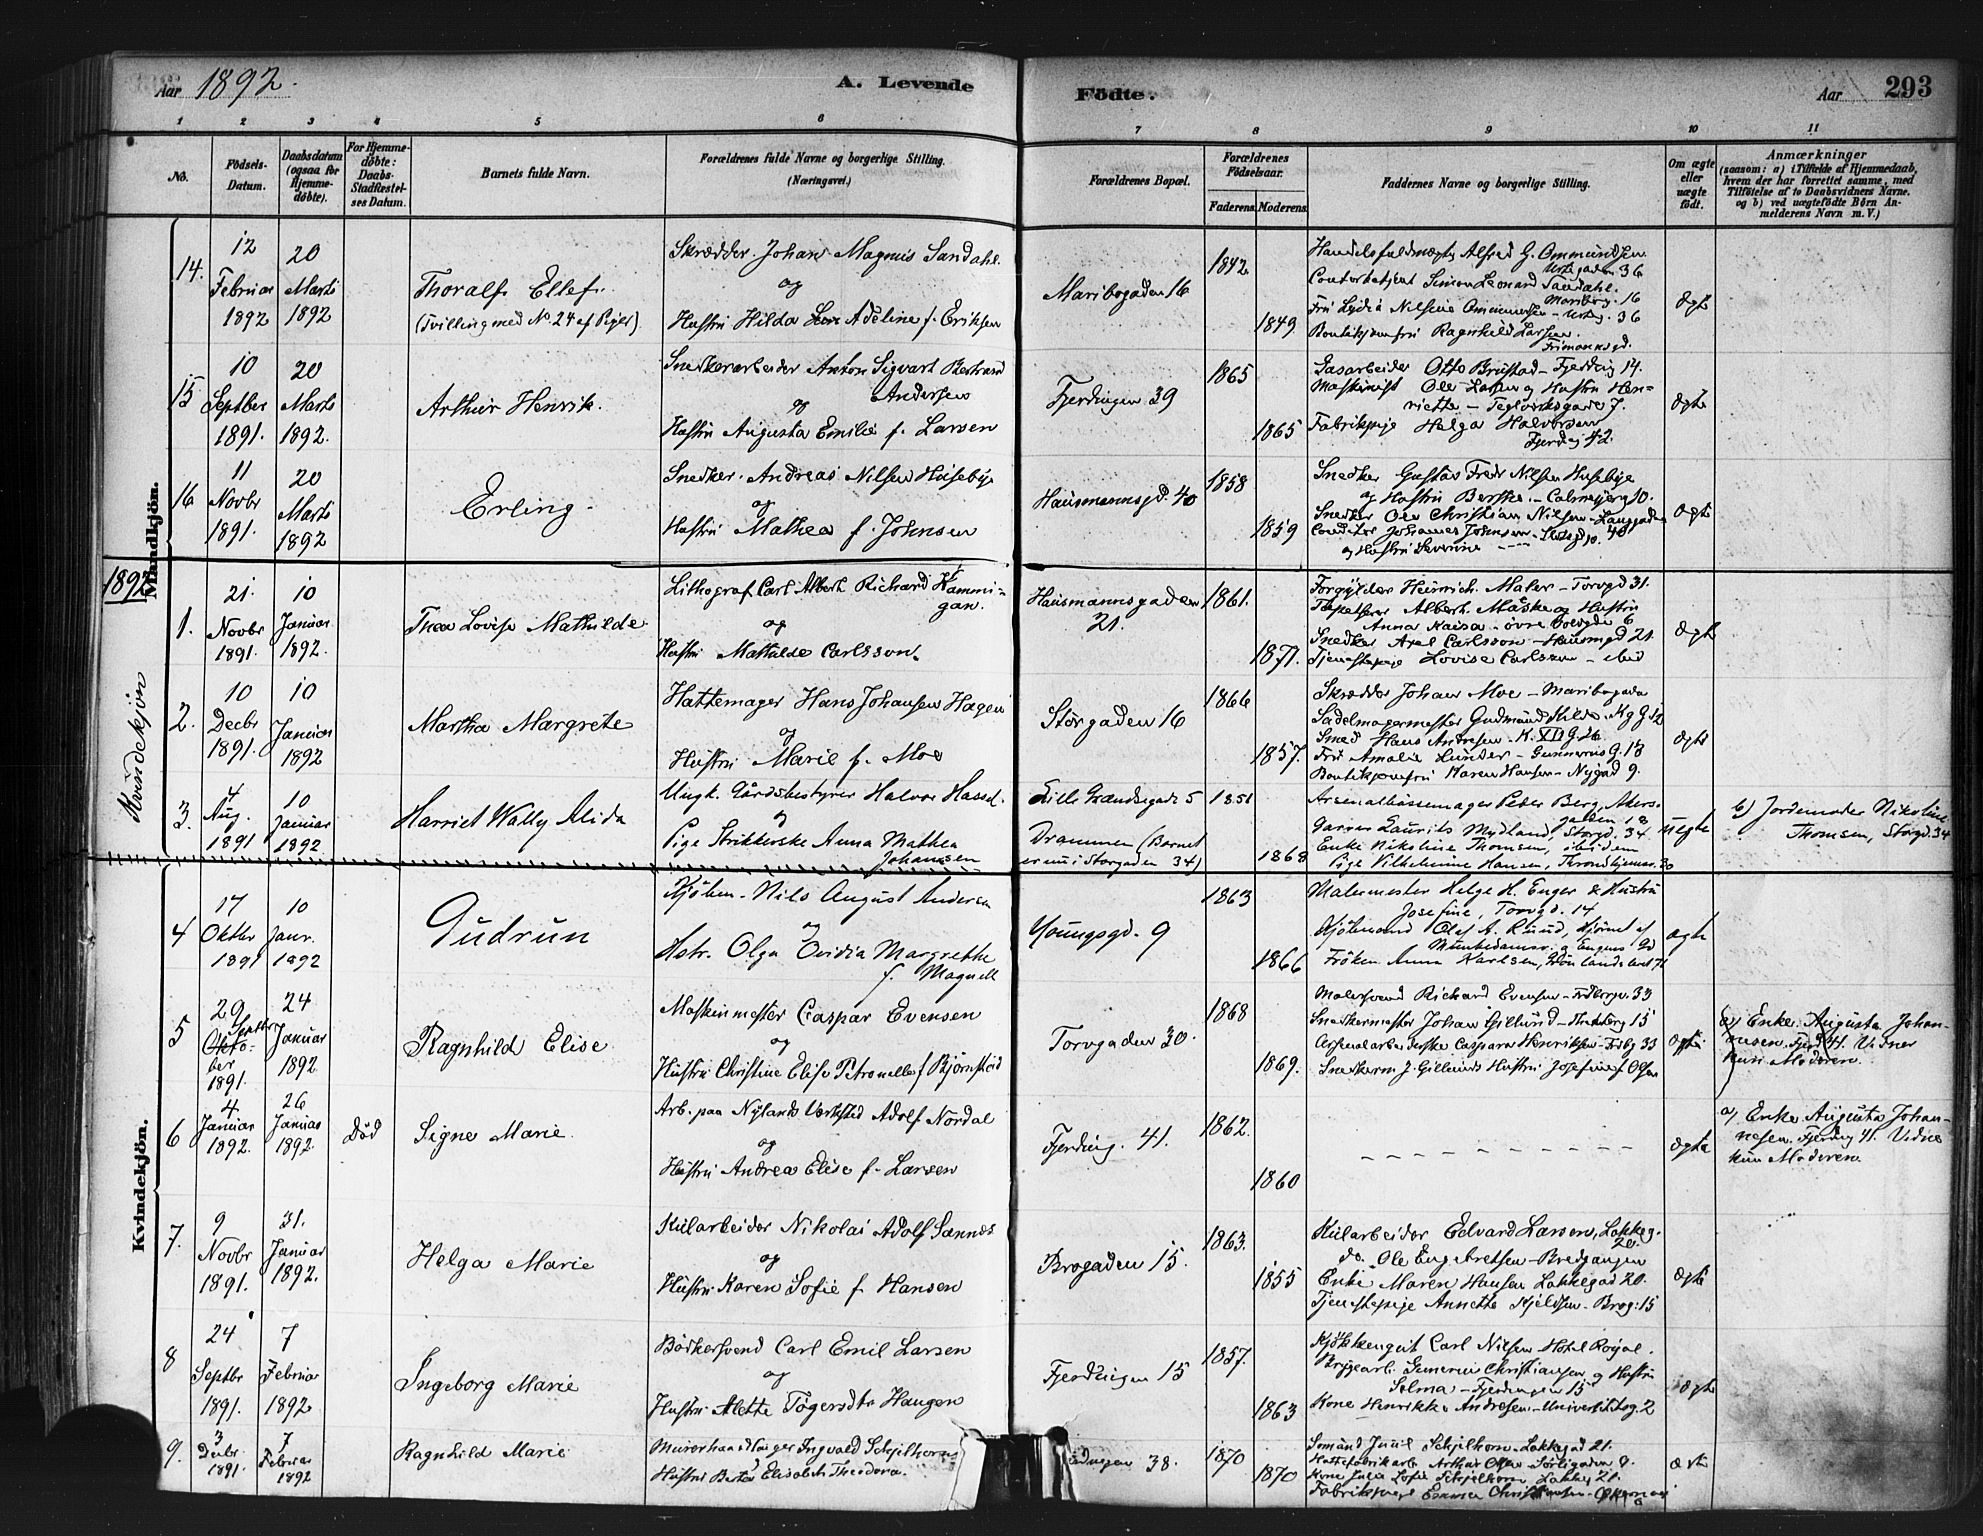 Aar 1892.
A. Levende
Födte.
Aar
293
1 2 3 4 5 6 7 8 9 10 11
No.
Födsels-
Datum.
Daabsdatum
(ogsaa for
Hjemme-
döbte).
For Hjemme-
döbte:
Daabs-
Stadfæstel-
ses Datum.
Barnets fulde Navn.
Forældrenes fulde Navne og borgerlige Stilling.
(Næringsvei.)
Forældrenes Bopæl.
Forældrenes
Födselsaar.
Faderens. Moderens.
Faddernes Navne og borgerlige Stilling.
Om ægte
eller
uægte
födt.
Anmærkninger
(saasom: a) i Tilfælde af Hjemmedaab,
hvem der har forrettet samme, med
Tilföielse af to Daabsvidners Navne.
og b) ved uægtefödte Börn An-
melderens Navn m. V.)
Mandkjön.
14.
12
Februar
1892
20
Marts
1892
Thoralf Ellef.
(Tvilling med No. 24 af Piger)
Skrædder Johan Magnus Sandahl.
og
Hustru Hilda Adeline f. Eriksen
Maribogaden 16
1842.
1849.
Handelsfuldmægtig Alfred G. Ommundsen
Urtegaden 36
Contorbetjent Simon Leonard Sandahl.
Maribog. 16
Fru Lydia Nilsine Ommundsen - Urteg. 36
Ragnhild Larsen
ægte
15
10
Septber
1891.
20
Marts
1892.
Arthur Henrik.
Snedkerarbeider Anton Sigvart Bertrand
Andersen
og
Hustru Augusta Emilie f. Larsen
Fjerdingen 39
1865
1865
Gasarbeider Otto Brustad - Fjerding 14.
Maskinist Ole Larsen og Hustru Hen-
riette - Teglverksgade 7.
Fabrikpige Helga Halvorsen
Fjerding 42.
ægte
16
11
Novbr
1891.
20
Marts
1892
Erling.
Snedker Andreas Nilsen Huseby
og
Hustru Mathea f. Johnsen
Hausmannsgd. 40
1858
1859
Snedker Gustav Fredr Nilsen Huseby
og Hustru Berthe - Calmeyerg 10.
Snedker Ole Christian Nilsen - Langgaden
Conditor Johannes Johnsen
og Hustru Severine
ægte
1892
Kvindekjön
1.
21.
Novbr
1891.
10
Januar
1892.
Thea Lovise Mathilde
Lithograf Carl Albert Richard Hammi-
gan.
og
Hustru Mathilde Carlsson.
Hausmannsgaden
21.
1861.
1871.
Forgylder Heinrich Maler - Torvgd 31.
Tapetserer Albert Maske og Hustru
Anna Kaisa - övre Voldgd 6
Snedker Axel Carlsson - Hausmgd 21.
Tjenestepige Lovise Carlsson - ibid
ægte
2.
10
Decbr
1891.
10
Januar
1892
Martha Margrete
Hattemager Hans Johansen Hagen
og
Hustru Marie f. Moe
Storgaden 16
1866
1857.
Skrædder Johan Moe - Maribogaden
Sadelmagermester Gudmund Kilde
Smed Hans Andresen - K. XII G. 26.
Fru Amalie Lunder - Gunnerus G. 13
Karen Hansen - Nygad 9.
ægte
3.
4
Aug.
1891
10
Januar
1892.
Harriet Wally Alida
Ungk. Gårdsbestyrer Halvor Hassel.
og
Pige Strikkerske Anna Mathea
Johansen
Lille Grændsegade 5
Drammen (Barnet
er nu i Storgaden 34)
1851
1868
Peder Berg, Akers-
gaden 18
Garver Laurits Mydland, Storgd. 34
Enke Nikoline Thomsen, ibidem
Pige Vilhelmine Hansen, Throndhjemsv. 30
uegte
b) Jordemoder Nikoline
Thomsen, Storgd. 34
4
17
Oktbr
1891
10
Janr.
1892
Gudrun
Kjöbm. Nils August Andersen
og
Hstr. Olga Ovidia Margrethe
f. Magnell
Youngsgd. 9
1863
1866
Malermester Helge H. Enger & Hustru
Josefine, Torvgd. 14
Kjöbmand Olaf A. Ruud, Hjörnet af
Munkedamsv. og Engens Gd
Fröken Anna Karlsen, Grönlandsleret 71
ægte
Kvindekjön.
5
29
Septbr
Okto-
ber
1891.
24
Januar
1892
Ragnhild Elise
Maskinmester Caspar Evensen
og
Hustru Christine Elise Petronelle f. Björnstad
Torvgaden 30.
1868
1869.
Malersvend Richard Evensen
Snedkermester Johan Gillund
Gillunds Hustru Josefine f Olsen
ægte
a) Enke Augusta Johan-
nesen, Fjerd 41. Vidner
kun Moderen.
6
4.
Januar
1892.
26
Januar
1892.
Död
Signe Marie.
Arb. paa Nylands Verksted Adolf Nordal
og
Hustru Andrea Elise f. Larsen
Fjerding. 41.
1862.
1860
ægte
a) Enke Augusta Johan-
nesen. Fjerding 41. Vidne
kun Moderen.
7.
9
Novbr
1891.
31.
Januar
1892.
Helga Marie
Kularbeider Nikolai Adolf Sannes
og
Hustru Karen Sofie f. Hansen
Brogaden 15.
1863.
1855
Kularbeider Edvard Larsen, Lakkeg.
20.
do. Ole Engebretsen - Bredgangen
Enke Maren Hansen Lakkegad 20.
Tjenestepige Annette Kjeldsen - Brog: 15
ægte
8
24
Septbr
1891.
7
Februar
1892
Ingeborg Marie
Bödkersvend Carl Emil Larsen
og
Hustru Alette Tögersdtr Haugen
Fjerdingen 15
1857.
1863
Carl Nilsen Hotel Royal.
Christiansen og Hustru
Selma - Fjerdingen 15
Kone Henrikke Andresen - Universitetsg. 2
ægte
9.
3
Decbr.
1891.
7
Februar
1892
Ragnhild Marie
Murerhaandlanger Ingvald Schjelhorn
Hustru Berta Elisabeth Theodora.
38.
1870
1870
Sömand Juul Schjelhorn - Lakkegad 21.
Hattefabrikarb. Arthur Olsen - Sörligaden 8.
Kone Julie Sofie Schjelhorn Lakkeg 21.
Fabrikpige Emma
ægte